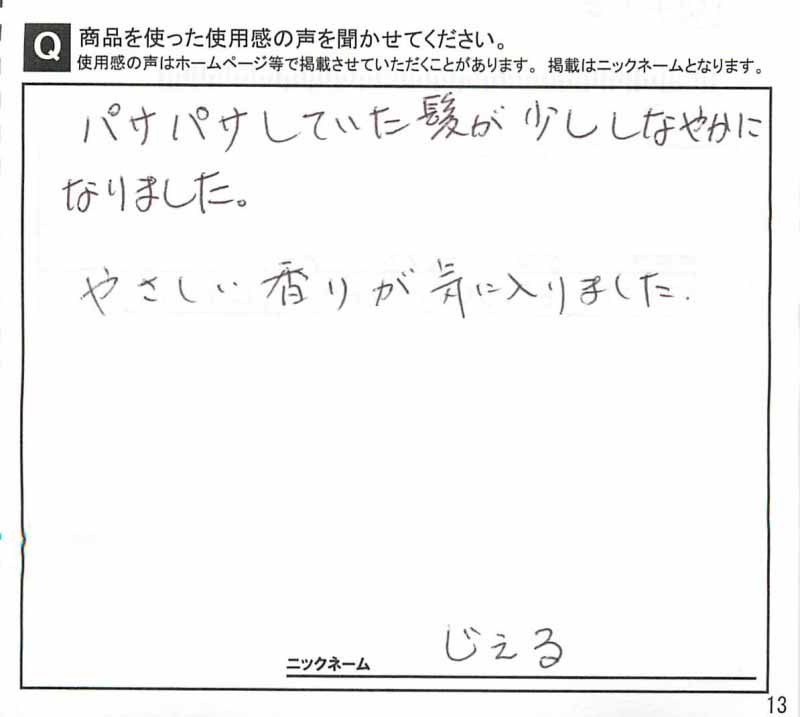 Q 商品を使った使用感の声を聞かせてください。
使用感の声はホームページ等で掲載させていただくことがあります。 掲載はニックネームとなります。
パサパサしていた髪が少ししなやかに
なりました。
やさしい香りが気に入りました.
ニックネーム じぇる
13